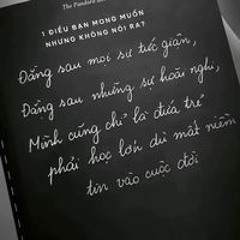 The Pandora
1 ĐIỀU BẠN MONG MUỐN
NHƯNG KHÔNG NÓI RA?
Đằng sau mọi sự tức giận,
Đằng sau những sự hoài nghi,
Mình cũng chỉ là đứa trẻ
phải học lớn dù mất niềm
tin vào cuộc đời